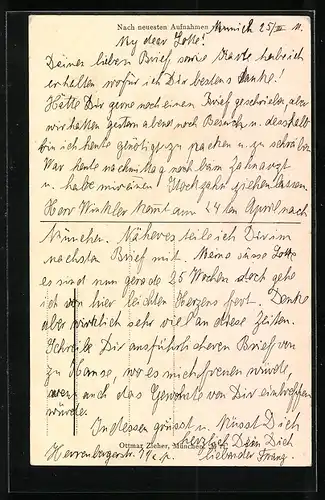 Nach neuesten Aufnahmen Munich 25/III 11.
My dear Lotte!
Deinen lieben Brief sowie Karte habe ich
erhalten wofür ich Dir bestens danke!
Hätte Dir gerne noch einen Brief geschrieben, aber
wir hatten gestern abend noch Besuch u. deshalb
bin ich heute genötigt zu packen u. zu schreiben
War heute nachmittag noch beim Zahnarzt
u. habe mir einen Stockzahn ziehen lassen.
Herr Winkler kommt am 24ten April nach
München. Näheres teile ich Dir im
nächsten Brief mit. Meine süsse Lotte
es sind nun gerade 25 Wochen doch gehe
ich von hier leichten Herzens fort. Denke
aber wirklich sehr viel an diese Zeiten.
Schreibe Dir ausführlicheren Brief von
zu Hause, wo es mich freuen würde,
wenn auch das Gewohnte von Dir eintreffen
würde.
Indessen grüsst u. küsst Dich
herzlich Dein Dich
Ottmar Zieher, München
liebender Franz.
Herrenbergerstr.